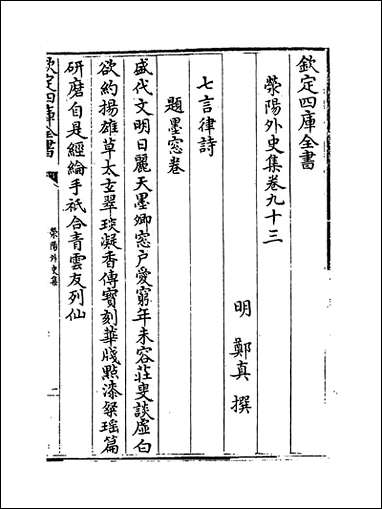 欽定四庫全書
滎陽外史集卷九十三
明 鄭真 撰
七言律詩
題墨窓卷
盛代文明日麗天墨卿窓户愛窮年未容莊叟談虛白
欲約揚雄草太𤣥翠琰凝香傳寳刻華牋㸃漆粲瑶篇
研磨自是經綸手祇合青雲友列仙
欽定四庫全書
滎陽外史集
一